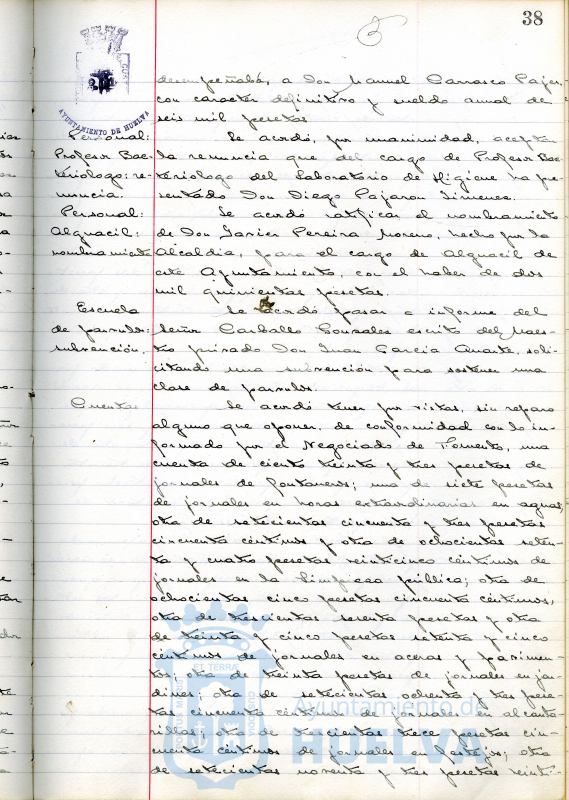 38
AYUNTAMIENTO DE HUELVA
desempeñaba, a Don Manuel Carrasco Pajar
con caracter definitivo y sueldo anual de
seis mil pesetas
Personal:
Profesor Bac-
teriologo: re-
nuncia.
Se acordó, por unanimidad, aceptar
la renuncia que del cargo de Profesor Bac
teriologo del Laboratorio de Higiene ha pre
sentado Don Diego Pajaron Jimenez.
Personal:
Alguacil:
nombramiento
Se acordó ratificar el nombramiento
de Don Javier Pereira Moreno, hecho por la
Alcaldia, para el cargo de Alguacil de
este Ayuntamiento, con el haber de dos
mil quinientas pesetas.
Escuela
de parvulos:
subvención.
Se acordó pasar a informe del
Señor Carballo Gonzalez escrito del Maes-
tro privado Don Juan Garcia Duarte, soli-
citando una subvención para sostener una
clase de parvulos.
Cuentas
Se acordó tener por vistas, sin reparo
alguno que oponer, de conformidad con lo in-
formado por el Negociado de Fomento, una
cuenta de ciento treinta y tres pesetas de
jornales de fontaneros; una de siete pesetas
de jornales en horas extraordinarias en aguas,
otra de setecientas cincuenta y tres pesetas
cincuenta céntimos y otra de ochocientas seten-
ta y cuatro pesetas veinticinco céntimos de
jornales en la limpieza pública; otra de
ochocientas cinco pesetas cincuenta céntimos,
otra de trescientas sesenta pesetas y otra
de treinta y cinco pesetas setenta y cinco
céntimos de jornales en aceras y pavimen-
tos; otra de treinta pesetas de jornales en jar-
dines; otra de setecientas ochenta y tres pese-
tas cincuenta céntimos de jornales en alcanta-
rillas; otra de trece pesetas cin-
cuenta céntimos de jornales en festejos; otra
de setecientas noventa y tres pesetas veinti-
Ayuntamiento de
HUELVA